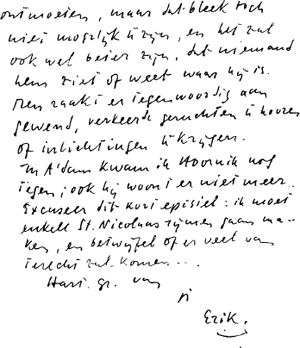 ontmoeten, maar dat bleek toch
niet mogelijk te zijn, en het zal
ook wel beter zijn, dat niemand
hem ziet of weet waar hij is.
Men raakt er tegenwoordig aan
gewend, verkeerde geruchten te horen
of inlichtingen te krijgen.
In A'dam kwam ik Hoornik nog
tegen; ook hij woont er niet meer.
Excuseer dit kort epistel: ik moet
enkele St. Nicolaas rijmen gaan ma-
ken, en betwijfel of er veel van
terecht zal komen...
Hart. gr. van
Erik.